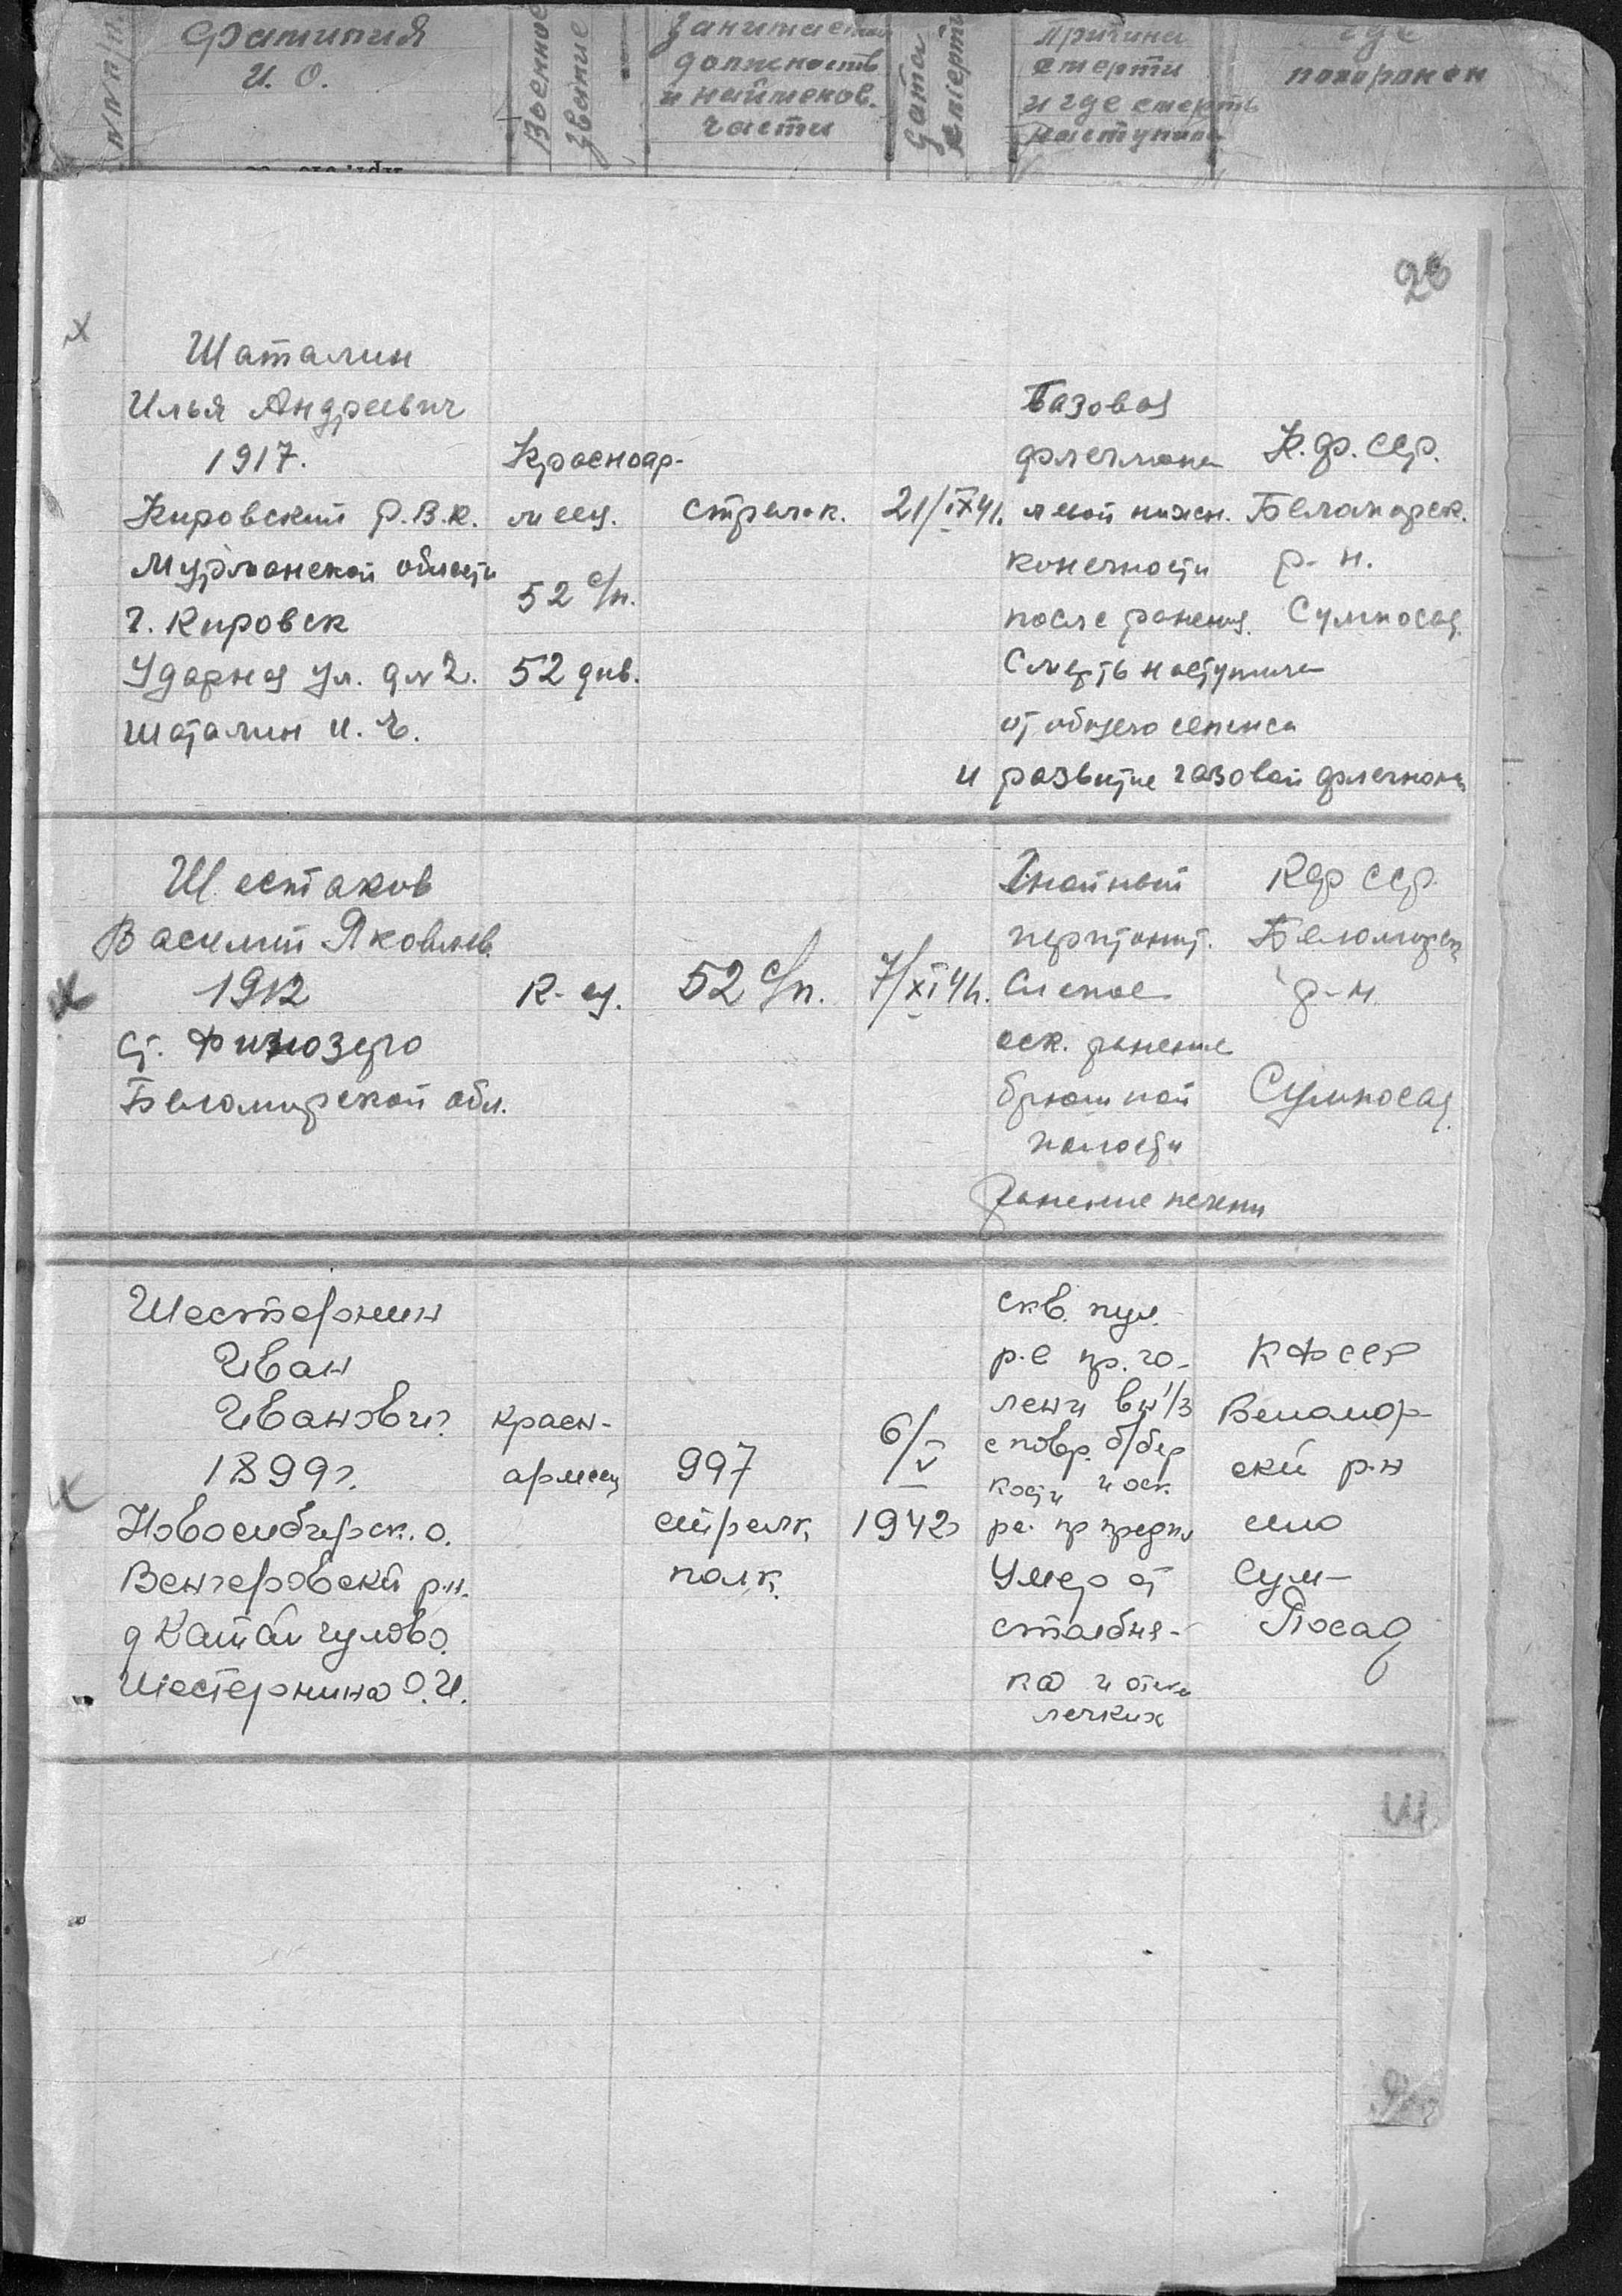 №№ п/п
Фамилия
И. О.
Военное
звание
Занимаемая
должность
и наименов.
части
Дата
смерти
Причина
смерти
и где смерть
наступила
где
похоронен
Шаталин
Илья Андреевич
1917.
Кировский Р.В.К.
Мурманской области
г. Кировск
Ударная ул. д №2.
Шаталин И. Г.
Красноар-
меец.
52 с/п.
52 див.
стрелок.
21/IX 41.
Газовая
флегмона
левой нижн.
конечности
после ранения.
Смерть наступила
от общего сепсиса
и развитие газовой флегмоны
К.Ф.ССР.
Беломорск.
р-н.
Сумпосад.
Шестаков
Василий Яковлев.
1912
ст. Физиозеро
Беломорской обл.
К-ец.
52 с/п.
7/XI 41.
Гнойный
перитонит.
Слепое
оск. ранение
брюшной
полости
Ранение печени
КФ ССР.
Беломорск
р-н
Сумпосад.
Шестернин
Иван
Иванович
1899г.
Новосибирск. о.
Венгеровский р-н.
д Катангулово.
Шестернина О.И.
красн-
армеец
997
стрелк.
полк.
6/V
1942г
скв. пул.
р-е пр. го-
лени вн 1/3
с повр. б/бер
кости и оск.
ре. пр предпл
Умер от
столбня-
ка и отека
легких
КФССР
Беломор-
ский р-н
село
Сум-
Посад
Ш